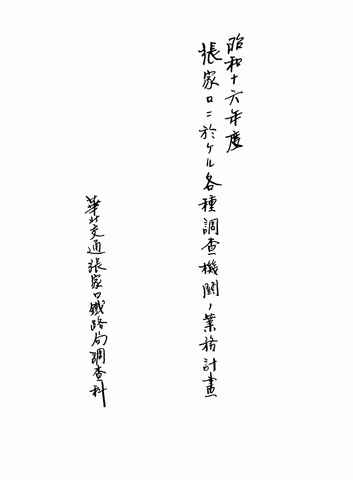 昭和十六年度
張家口ニ於ケル各種調査機関ノ業務計畫
華北交通張家口鐵路局調査科